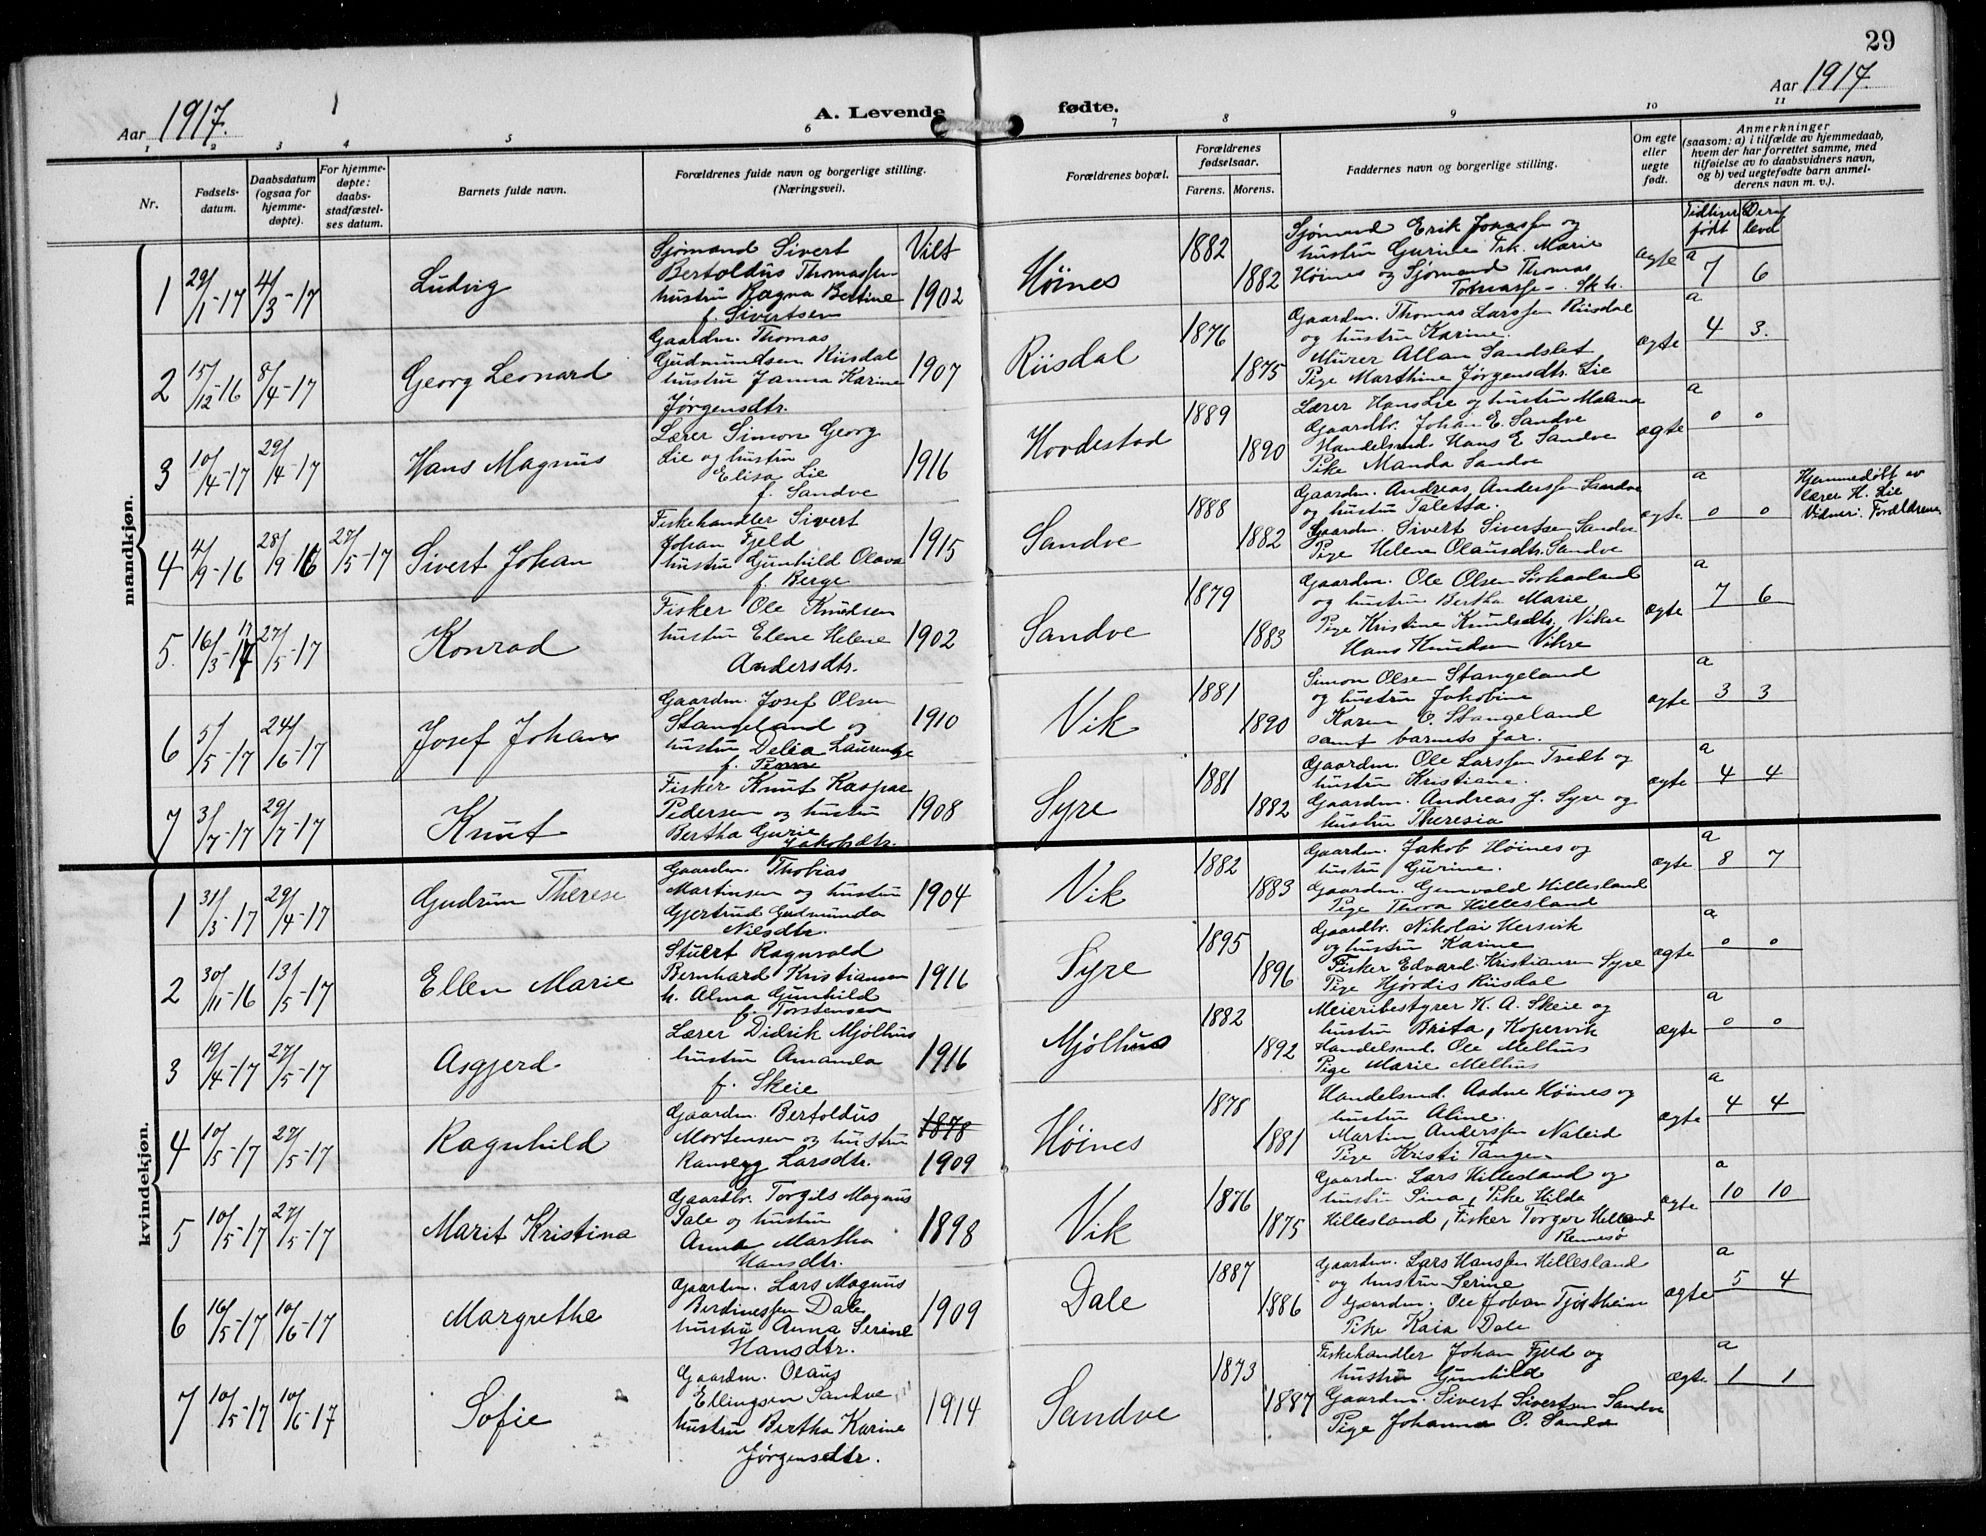 29
Aar 1917.
1
A. Levende
fødte.
Aar 1917.
1 2 3 4 5 6 7 8 9 10 11
Nr.
Fødsels-
datum.
Daabsdatum
(ogsaa for
hjemme-
døpte).
For hjemme-
døpte:
daabs-
stadfæstel-
ses datum.
Barnets fulde navn.
Forældrenes fulde navn og borgerlige stilling.
(Næringsvei).
Forældrenes bopæl.
Forældrenes
fødselsaar.
Farens. Morens.
Faddernes navn og borgerlige stilling.
Om egte
eller
uegte
født.
Anmerkninger
(saasom: a) i tilfælde av hjemmedaab,
hvem der har forrettet samme, med
tilføielse av to daabsvidners navn,
og b) ved uegtefødte barn anmel-
derens navn m. v.).
Tidligere
født
Derav
leve
mandkjøn.
1 29/1-17 4/3-17 Ludvig
Sjømand Sivert
Bertoldus Thomassen
hustru Ragna Bertine
f. Sivertsen
Viet
1902
Høines
1882
1882
Sjømand Erik Jonassen og
hustru Gurine Frk. Marie
Høines og Sjømand Thomas
Tomasse- Sk.h.
ægte
a
7 6
2 15/12-16 8/4-17 Georg Leonard
Gaardm. Thomas
Gudmundsen Riisdal
hustru Janna Karine
Jørgensdtr.
1907
Riisdal
1876
1875
Gaardm. Thomas Larssen Riisdal
og hustru Karine.
Murer Allan Sandslet
Pige Marthine Jørgensdtr. Lie
ægte
a
4 3.
3 10/4-17 29/4-17 Hans Magnus
Lærer Simon Georg
Lie og hustru
Elisa Lie
f. Sandve
1916
Hovdestad
1889
1890
Lærer Hans Lie og hustru Malena
Gaardbr. Johan E. Sandve
Handelsmd. Hans E Sandve
Pike Manda Sandve
ægte
a
0 0
4 4/9-16 28/9 16 27/5-17 Sivert Johan
Fiskehandler Sivert
Johan Fjeld
hustru Gunhild Olava
f. Berge
1915
Sandve
1888
1882
Gaardm. Andreas Anderssen Sandve
og hustru Taletta.
Gaardm. Sivert Sivertsen Sandve
Pige Helene Olausdtr. Sandve
ægte
a
0 0
Hjemmedøbt av
lærer H. Lie
Vidner: Forældrene
5. 16/3-17 27/5-17 Konrad
Fisker Ole Knudsen
hustru Elene Helene
Andersdtr.
1902
Sandve
1879
1883
Gaardm. Ole Olsen Sørhaaland
og hustru Bertha Marie
Pige Kristine Knudsdtr. Vikre
Hans Knudsen Vikre
ægte
a
7 6
6 5/5-17 24/6-17 Josef Johan
Gaardm. Josef Olsen
Stangeland og
hustru Delia Laurentse
f.
1910
Vik
1881
1890
Simon Olsen Stangeland
og hustru Jakobine
Karen O. Stangeland
samt barnets far.
ægte
a
3 3
7 3/7-17 29/7-17 Knut
Fisker Knut Kaspar
Pedersen og hustru
Bertha Gurie
Jakobsdtr.
1908
Syre
1881
1882
Gaardm. Ole Larssen Tvedt og
hustru Kristiane.
Gaardm. Andreas J. Syre og
hustru Theresia
ægte
a
4 4
kvindekjøn.
1 31/3-17 29/4-17 Gudrun Therese
Gaardm. Thobias
Martinsen og hustru
Gjertrud Gudmunda
Nilsdtr.
1904
Vik
1882
1883
Gaardm. Jakob Høines og
hustru Gurine.
Gaardm. Gunvald Hillesland
Pige Thora Hillesland
ægte
a
8 7
2 30/11-16 13/5-17 Ellen Marie
Stuert Ragnvald
Bernhard Kristiansen
h. Alma Gunhild
f. Torstensen
1916
Syre
1895
1896
Gaardbr. Nikolai Hersvik
og hustru Karine
Fisker Edvard Kristiansen Syre
Pige Hjørdis Riisdal
ægte
a
0 0
3 19/4-17 27/5-17 Asgjerd
Lærer Didrik Mjølhus
hustru Amanda
f. Skeie
1916
Mjølhus
1882
1892
Meieribestyrer K. A. Skeie og
hustru Brita, Kopervik
Handelsmd. Ole Melhus
Pige Marie Melhus
ægte
a
0 0
4 10/5-17 27/5-17 Ragnhild
Gaardm. Bertoldus
Mortensen og hustru
Ranveig Larsdtr.
1878
1909
Høines
1878
1881
Handelsmd. Aadne Høines og
hustru Aline.
Martin Anderssen Naleid
Pige Kristi Tangen
ægte
a
4 4
5 10/5-17 27/5-17 Marit Kristina
Gaardbr. Torgils Magnus
Dale og hustru
Anna Martha
Hansdtr.
1898
Vik
1876
1875
Gaardm. Lars Hillesland og
hustru Sina, Pike Hilda
Hillesland, Fisker Torger Helland
Rennesø
ægte
a
10 10
6 16/5-17 10/6-17 Margrethe
Gaardm. Lars Magnus
Berdinessen Dale
hustru Anna Serine
Hansdtr.
1909
Dale
1887
1886
Gaardm. Lars Hanssen Hillesland
og hustru Serine
Gaardm. Ole Johan Tjøstheim
Pike Kaia Dale
ægte
a
5 4
7 10/5-17 10/6-17 Sofie
Gaardm. Olaus
Ellingsen Sandve
hustru Bertha Karine
Jørgensdtr.
1914
Sandve
1873
1887
Fiskehandler Johan Fjeld og
hustru Gunhild
Gaardm. Sivert Sivertsen Sandve
Pige Johanna O. Sandve
ægte
a
1 1